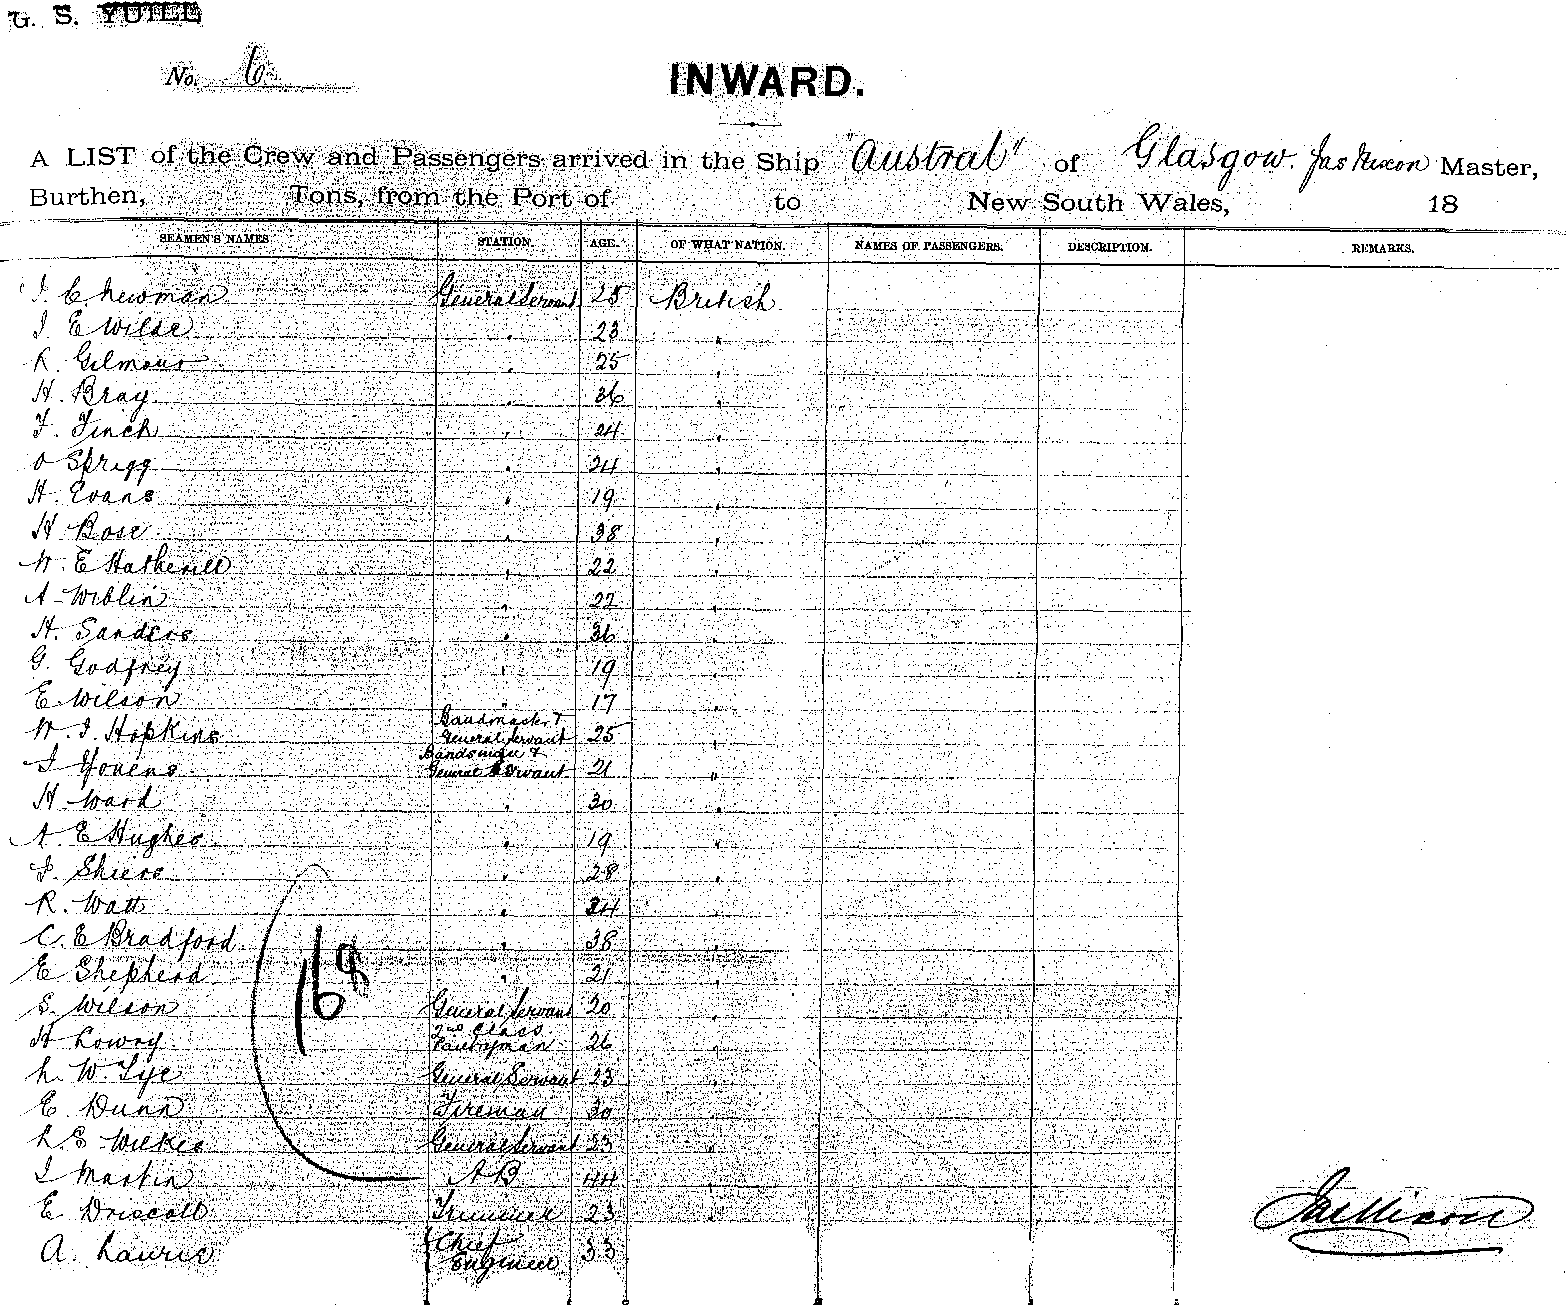 G. S. YUILL
No. 6
INWARD.
A LIST of the Crew and Passengers arrived in the Ship "Austral" of Glasgow. Jas Nixon Master,
Burthen, Tons, from the Port of to New South Wales, 18
SEAMEN'S NAMES STATION. AGE. OF WHAT NATION. NAMES OF PASSENGERS. DESCRIPTION. REMARKS.
J. E. Newman General Servant 25 British
J. E Wilde " 23 "
R. Gilmour " 25 "
H. Bray " 36 "
F. Finch " 24 "
O Sprigg " 24 "
H. Evans " 19 "
H Bose " 38 "
W. E Hatherill " 22 "
A Wiblin " 22 "
H. Sanders " 36 "
G. Godfrey " 19 "
E Wilson " 17 "
W. J. Hopkins Bandmaster & General Servant 25 "
J Yovens Bandsman & General Servant 21 "
H Ward " 30 "
A E Hughes " 19 "
J. Shiers " 28 "
R. Watt " 34 "
C. E Bradford " 38 "
E Shepherd " 21 "
168
S. Wilson General Servant 20 "
H Lowry 2nd Class Pantryman 26 "
L. W. Tye General Servant 23 "
E. Dunn Fireman 30 "
L E Wilkes General Servant 23 "
J Martin A B 44 "
E Driscoll Trimmer 23 "
A. Laurie Chief Engineer 33
Jas Nixon